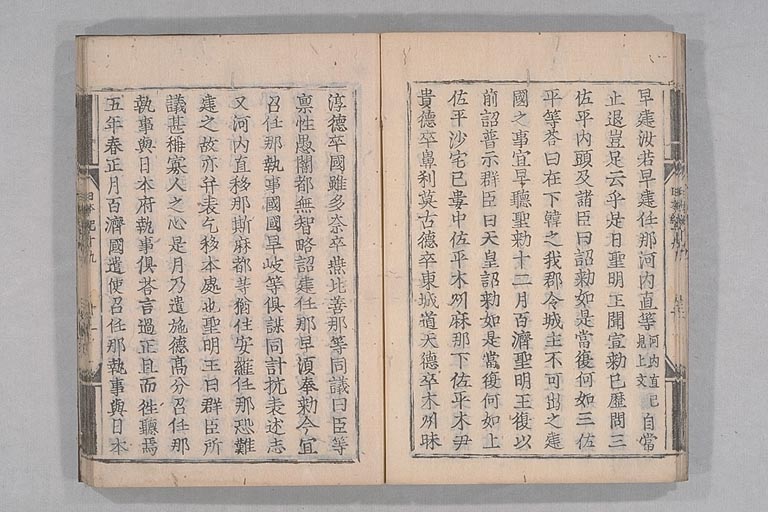 早建汝若早建任那河内直等河内直已見上文自當
止退豈足云乎是日聖明王聞宣勅已歷問三
佐平内頭及諸臣曰詔勅如是當復何如三佐
平等荅曰在下韓之我郡令城主不可出之建
國之事宜早聽聖勅十二月百濟聖明王復以
前詔普示群臣曰天皇詔勅如是當復何如上
佐平沙宅己婁中佐平木刕麻那下佐平木尹
貴德卒鼻利莫古德卒東城道天德卒木刕眯
淳德卒國雖多奈卒燕比善那等同議曰臣等
禀性愚闇都無智略詔建任那早湏奉勅今宜
召任那執事國國旱岐等俱謀同計抗表述志
又河内直移那斯麻都等猶住安羅任那恐難
建之故亦并表乞移本處也聖明王曰群臣所
議甚稱寡人之心是月乃遣施德高分召任那
執事與日本府執事俱荅言過正旦而徃聽焉
五年春正月百濟國遣使召任那執事與日本
日本紀十九